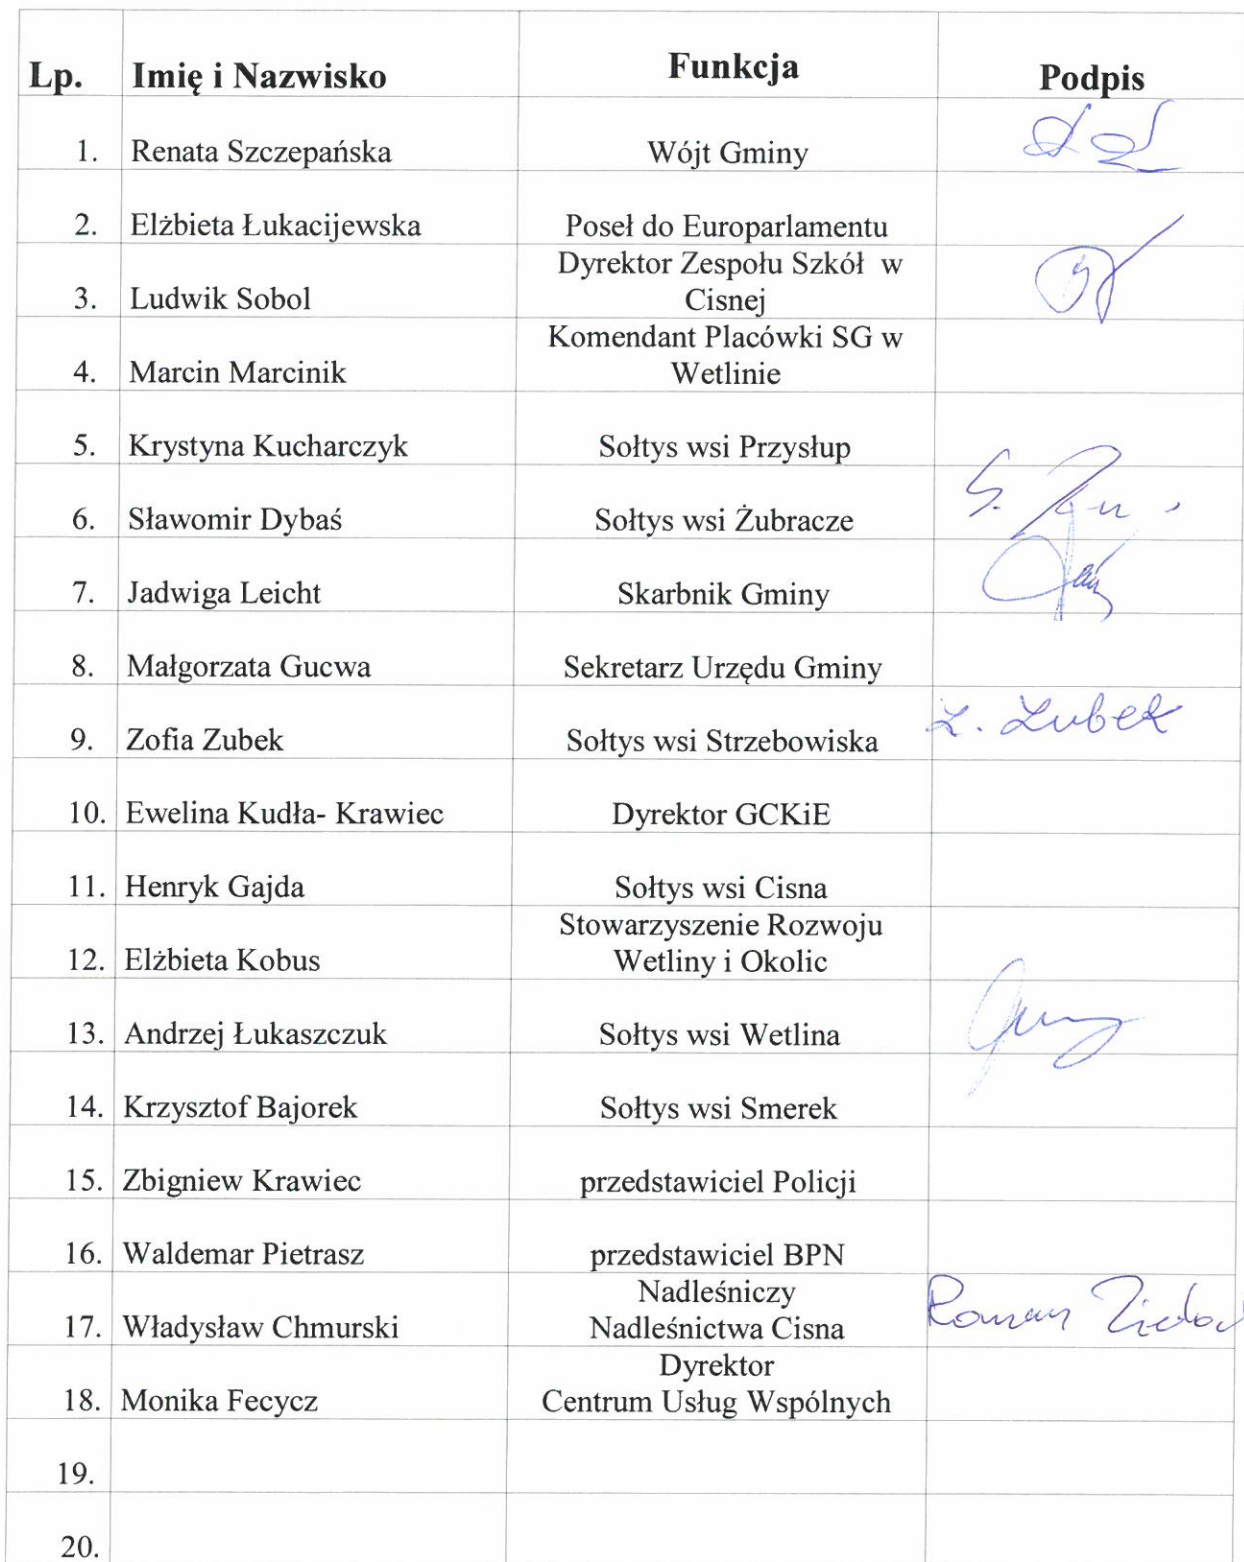 Lp. Imię i Nazwisko Funkcja Podpis
1. Renata Szczepańska Wójt Gminy
2. Elżbieta Łukacijewska Poseł do Europarlamentu
3. Ludwik Sobol Dyrektor Zespołu Szkół w
Cisnej
4. Marcin Marcinik Komendant Placówki SG w
Wetlinie
5. Krystyna Kucharczyk Sołtys wsi Przysłup
6. Sławomir Dybaś Sołtys wsi Żubracze
7. Jadwiga Leicht Skarbnik Gminy
8. Małgorzata Gucwa Sekretarz Urzędu Gminy
9. Zofia Zubek Sołtys wsi Strzebowiska Z. Zubek
10. Ewelina Kudła- Krawiec Dyrektor GCKiE
11. Henryk Gajda Sołtys wsi Cisna
12. Elżbieta Kobus Stowarzyszenie Rozwoju
Wetliny i Okolic
13. Andrzej Łukaszczuk Sołtys wsi Wetlina
14. Krzysztof Bajorek Sołtys wsi Smerek
15. Zbigniew Krawiec przedstawiciel Policji
16. Waldemar Pietrasz przedstawiciel BPN
17. Władysław Chmurski Nadleśniczy
Nadleśnictwa Cisna Roman
18. Monika Fecycz Dyrektor
Centrum Usług Wspólnych
19.
20.